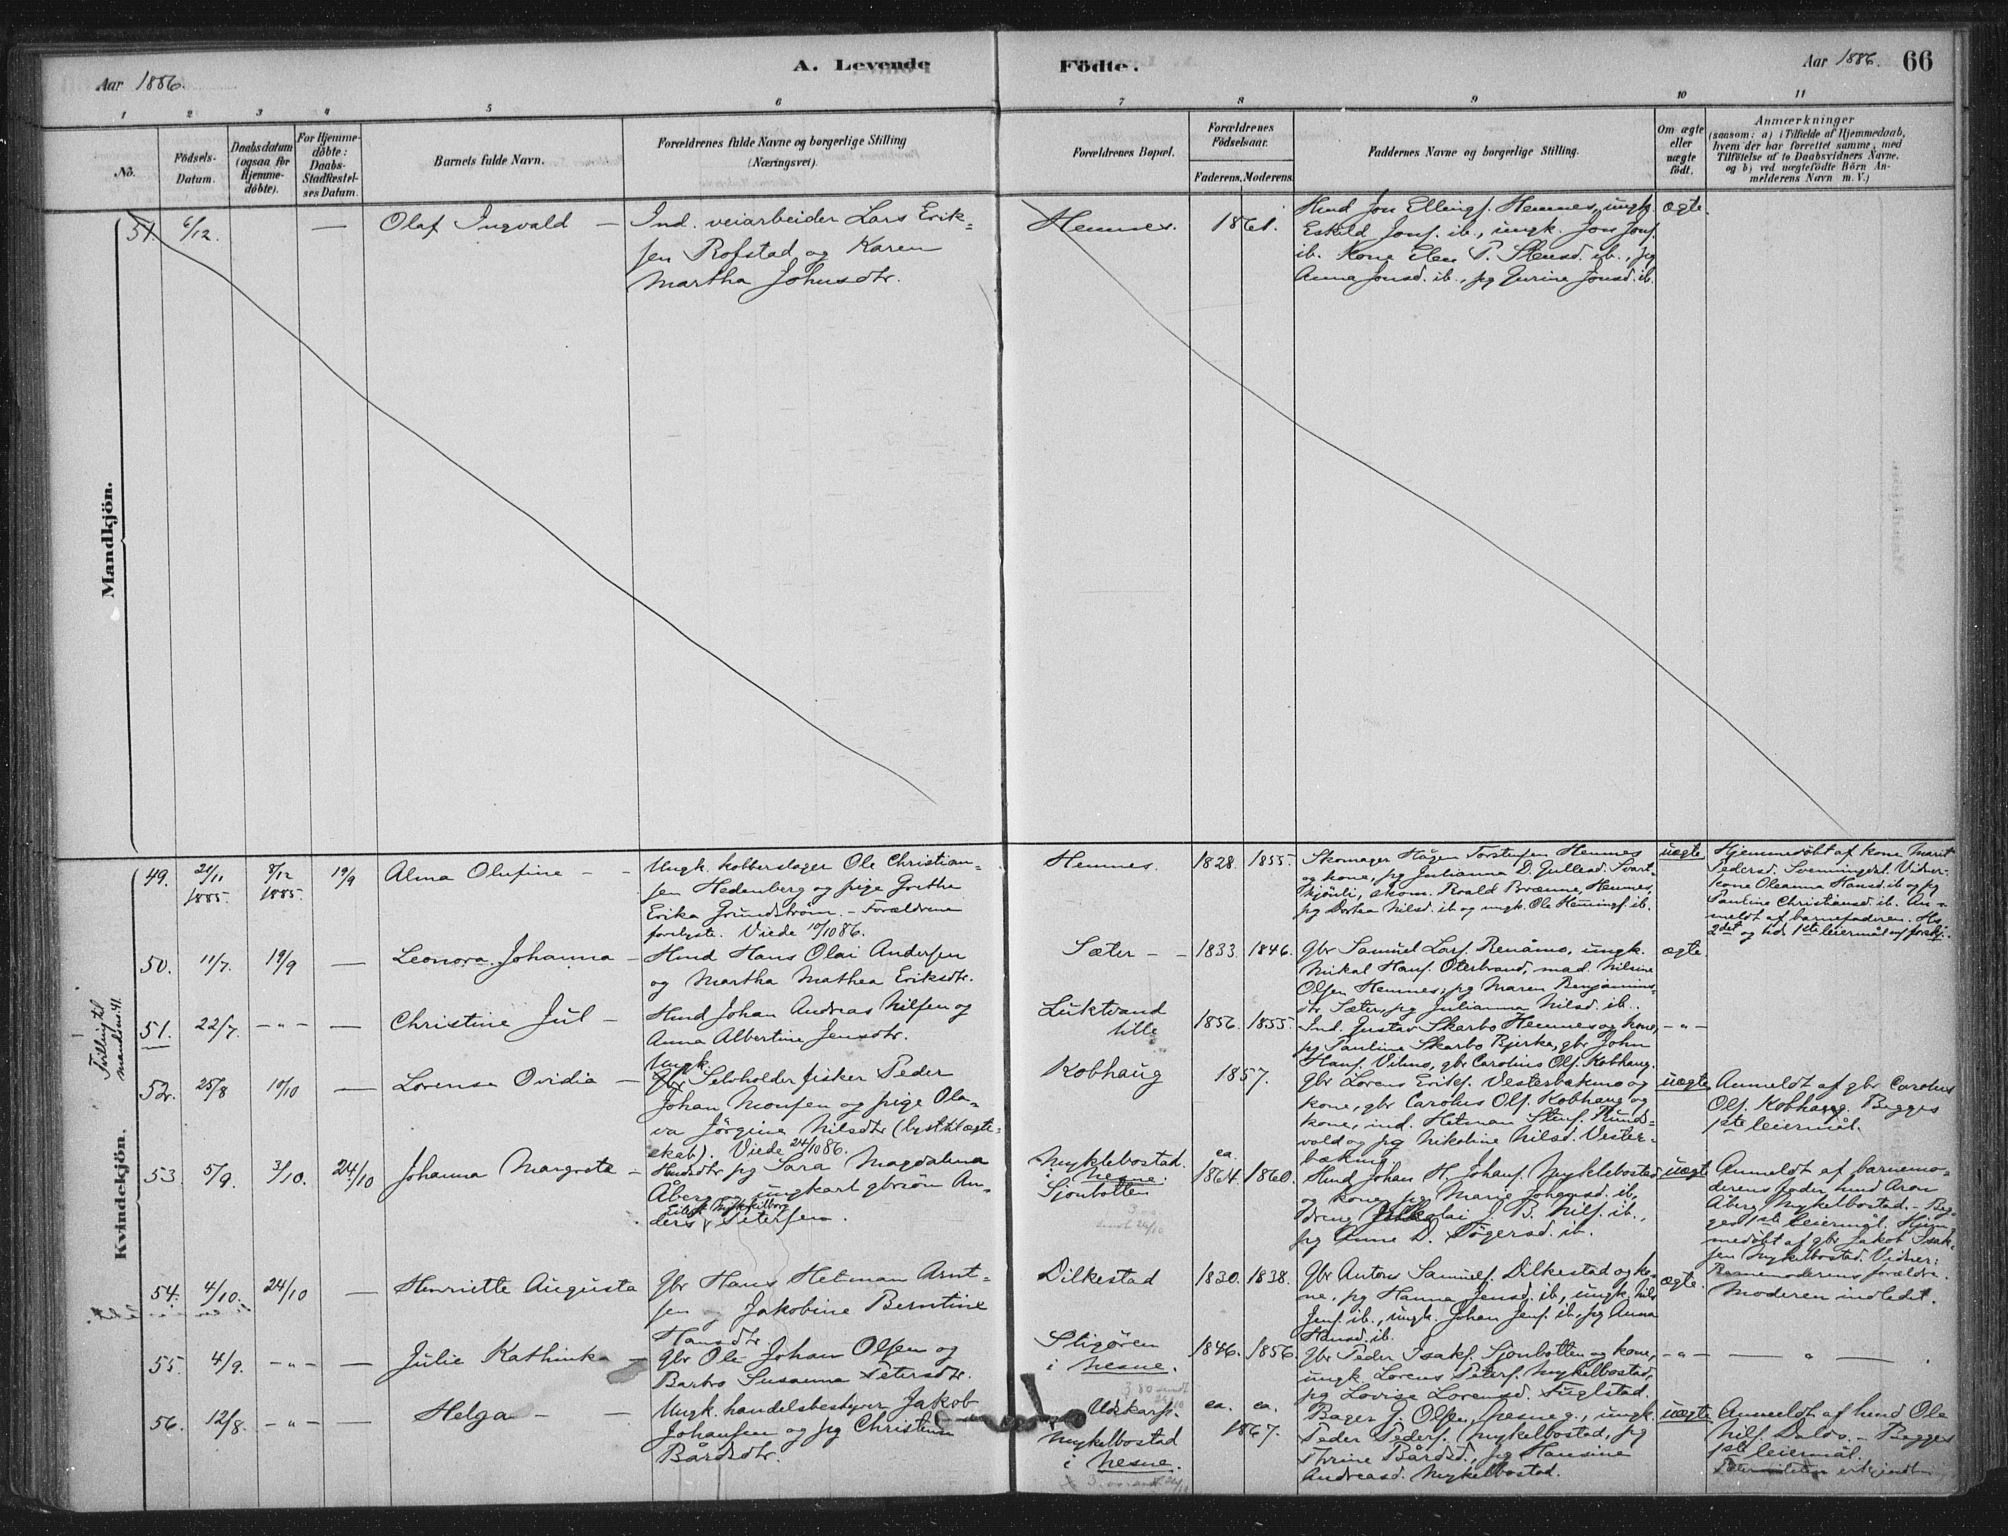 Aar 1886.
A. Levende
Födte.
Aar 1886.
66
1 2 3 4 5 6 7 8 9 10 11
No.
Födsels-
Datum.
Daabsdatum
(ogsaa for
Hjemme-
döbte).
For Hjemme-
döbte:
Daabs-
Stadfæstel-
ses Datum.
Barnets fulde Navn.
Forældrenes fulde Navne og borgerlige Stilling
(Næringsvei).
Forældrenes Bopæl.
Forældrenes
Födselsaar.
Faderens. Moderens.
Faddernes Navne og borgerlige Stilling.
Om ægte
eller
uægte
födt.
Anmærkninger
(saasom: a) i Tilfælde af Hjemmedaab,
hvem der har forrettet samme, med
Tilföielse af to Daabsvidners Navne.
og b) ved uægtefödte Börn An-
melderens Navn m. V.)
Mandkjön.
51. 6/12. — Olaf Ingvald —
Ind. veiarbeider Lars Erik-
sen Rofstad og Karen
Martha Johnsdtr.
Hemnes. 1861.
Hmd Jon Ellingf. Hemnes, ungk.
Eskild Jonf. ib., ungk. Jon Jonf.
ib. Kone Elen P. Stensd. ib., pg
Anna Jonsd. ib., pg Jurine Jonsd. ib.
ægte.
Kvindekjön.
49. 21/11 1885. 8/12 1885. 19/9 Alma Olufine - -
Ungk. kobberslager Ole Christian-
sen Hedenberg og pige Grethe
Erika Grundström. - Forældrene
forlovte. Viede 10/10 86.
Hemnes. 1828. 1855.
Skomager Hågen Torstensen Hemnes
og kone, pg Julianna D. Gullesd. Svart-
skom. Roald Brænne, Hemnes,
pg Dorthea Nilsd. ib og ungk. Ole Hemingf. ib.
uægte
Hjemmedöbt af kone Marit
Pedersd. Svenningdal. Vidner:
kone Oleanna Hansd. ib og pg
Pauline Christiansd. ib. An-
meldt af barnefaderen. Hs
2det og hd. 1ste leiermål m/ forskj.
50. 11/7. 19/9 — Leonora Johanna -
Hmd Hans Olai Andersen
og Martha Mathea Eriksdtr.
Sæter - - 1833. 1846.
Gbr Samuel Larf. Renåmo, ungk.
Mikal Hanf. Oterbrand, mad. Nilsine
Olsen Hemnes, pg Maren Benjamins-
dtr Sæter, pg Julianna Nilsd. ib.
ægte.
Tvilling til
mandkjøn 41.
51. 22/7. - " - — Christine Jul -
Hmd Johan Andreas Nilsen og
Anna Albertine Jensdtr.
Luktvand
lille
1856. 1855.
Ind. Gustav Skarbo Hemnes og kone,
pg Pauline Skarbo Bjerka, gbr John
Hanf. Vilmo, gbr Carolius Olf. Kobhaug.
- " -
52. 25/8 10/10 — Lorense Ovidia -
Ungk.
Selvholder fisker Peder
Johan Monsen og pige Ola-
va Jörgine Nilsdtr (lyst til ægte-
skab). Viede 24/10 86.
Kobhaug 1857.
Gbr Lorens Erikf. Vesterbakmo og
kone, gbr Carolus Olf. Kobhaug og
kone, ind. Hetman Stenf. Rund-
vald og pg Nikoline Nilsd. Vester-
bakmo.
uægte
Anmeldt af gbr Carolus
Olf. Kobhaug. Begges
1ste leiermål.
53. 5/9. 3/10. 24/10 Johanna Margrete -
Husdtr pg Sara Magdalena
Åberg og ungkarl gbrsön An-
ders Petersen.
Myklebostad.
i Nesne.
Sjonbotten
ca.
1864. 1860.
Hmd Johan H. Johanf. Myklebostad
og kone, pg Marie Johansd. ib.,
Dreng Nikolai J. B. Nilf. ib.,
pg Anne D. Tögersd. ib.
uægte
Anmeldt af barnemo-
derens fader hmd Aron
Åberg Mykelbostad. - Beg-
ges 1ste leiermål. Hjem-
medöbt af gbr Jakob Isak-
sen Mykelbostad. Vidner:
Barnemoderens forældre.
Moderen indledet.
54. 4/10. 24/10 — Henriette Augusta
Gbr Hans Hetman Arnt-
sen og Jakobine Berntine
Hansdtr.
Dilkestad 1830. 1838.
Gbr Antons Samuelf. Dilkestad og ko-
ne, pg Hanna Jensd. ib, ungk. Nils
Jenf. ib., ungk. Johan Jenf. ib., pg Anna
Hansd. ib.
ægte.
55. 4/9. - " - — Julie Kathinka -
Gbr Ole Johan Olsen og
Barbro Susanna Petersdtr.
Stigören
i Nesne.
1846. 1856.
Gbr Peder Isakf. Sjonbotten og kone,
ungk. Lorens Peterf. Mykelbostad,
pg Lovise Lorensd. Fuglstad.
- " - — " —
56. 12/8. - " - — Helga - -
Ungk. handelsbestyrer Jakob
Johansen og pg Christense
Bårdsdtr.
Utskarp.
Mykelbostad
i Nesne.
ca. ca.
1867.
Bager J. Olsen, Nesne g., ungk.
Peder Pederf. Mykelbostad, pg
Thrine Bårdsd., pg Hansine
Andreasd. Mykelbostad.
uægte
Anmeldt af hmd Ole
Nilf. Dalos. - Begges
1ste leiermål.